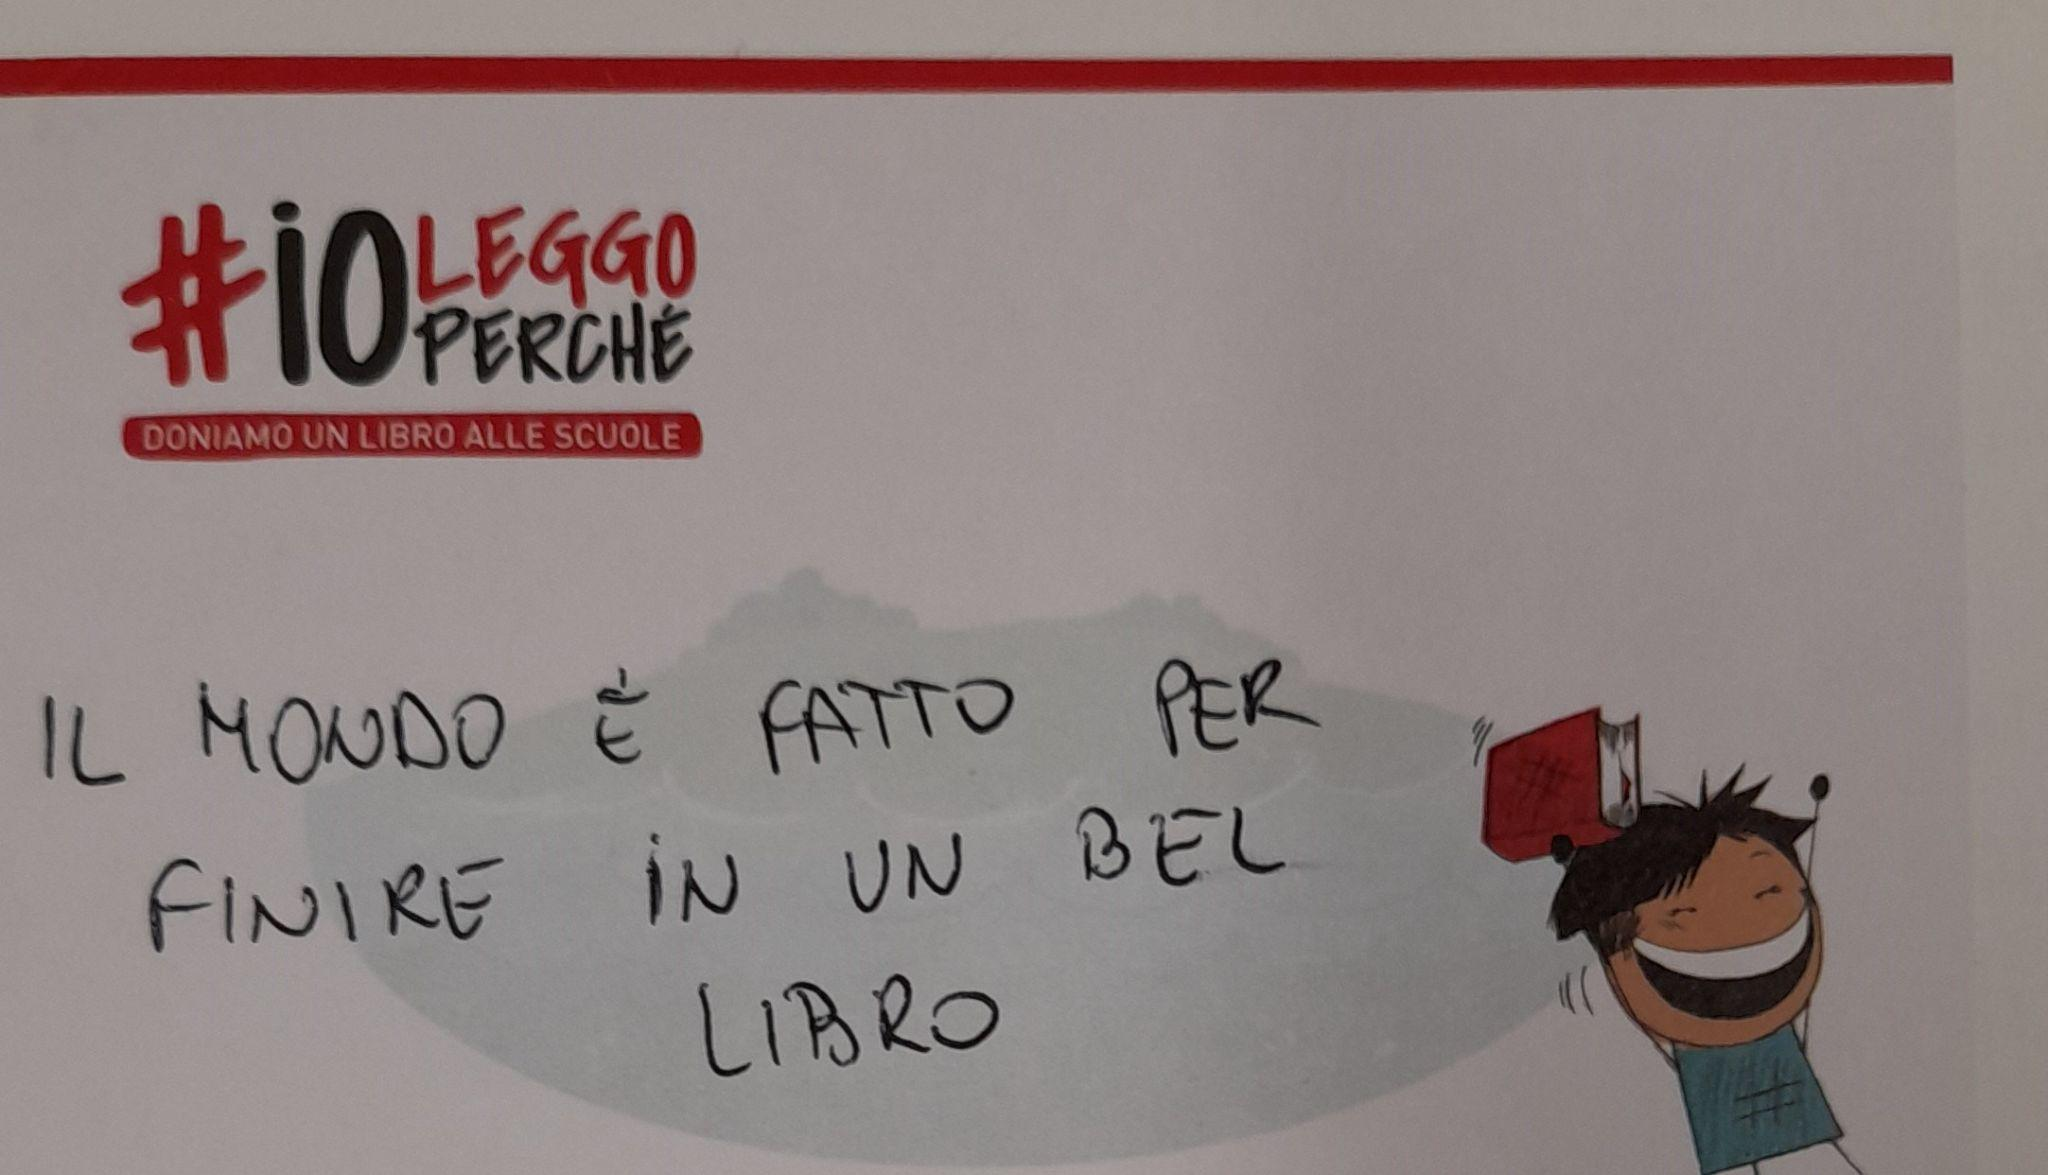 #iO LEGGO
PERCHÉ
DONIAMO UN LIBRO ALLE SCUOLE
IL MONDO È FATTO PER
FINIRE IN UN BEL
LIBRO